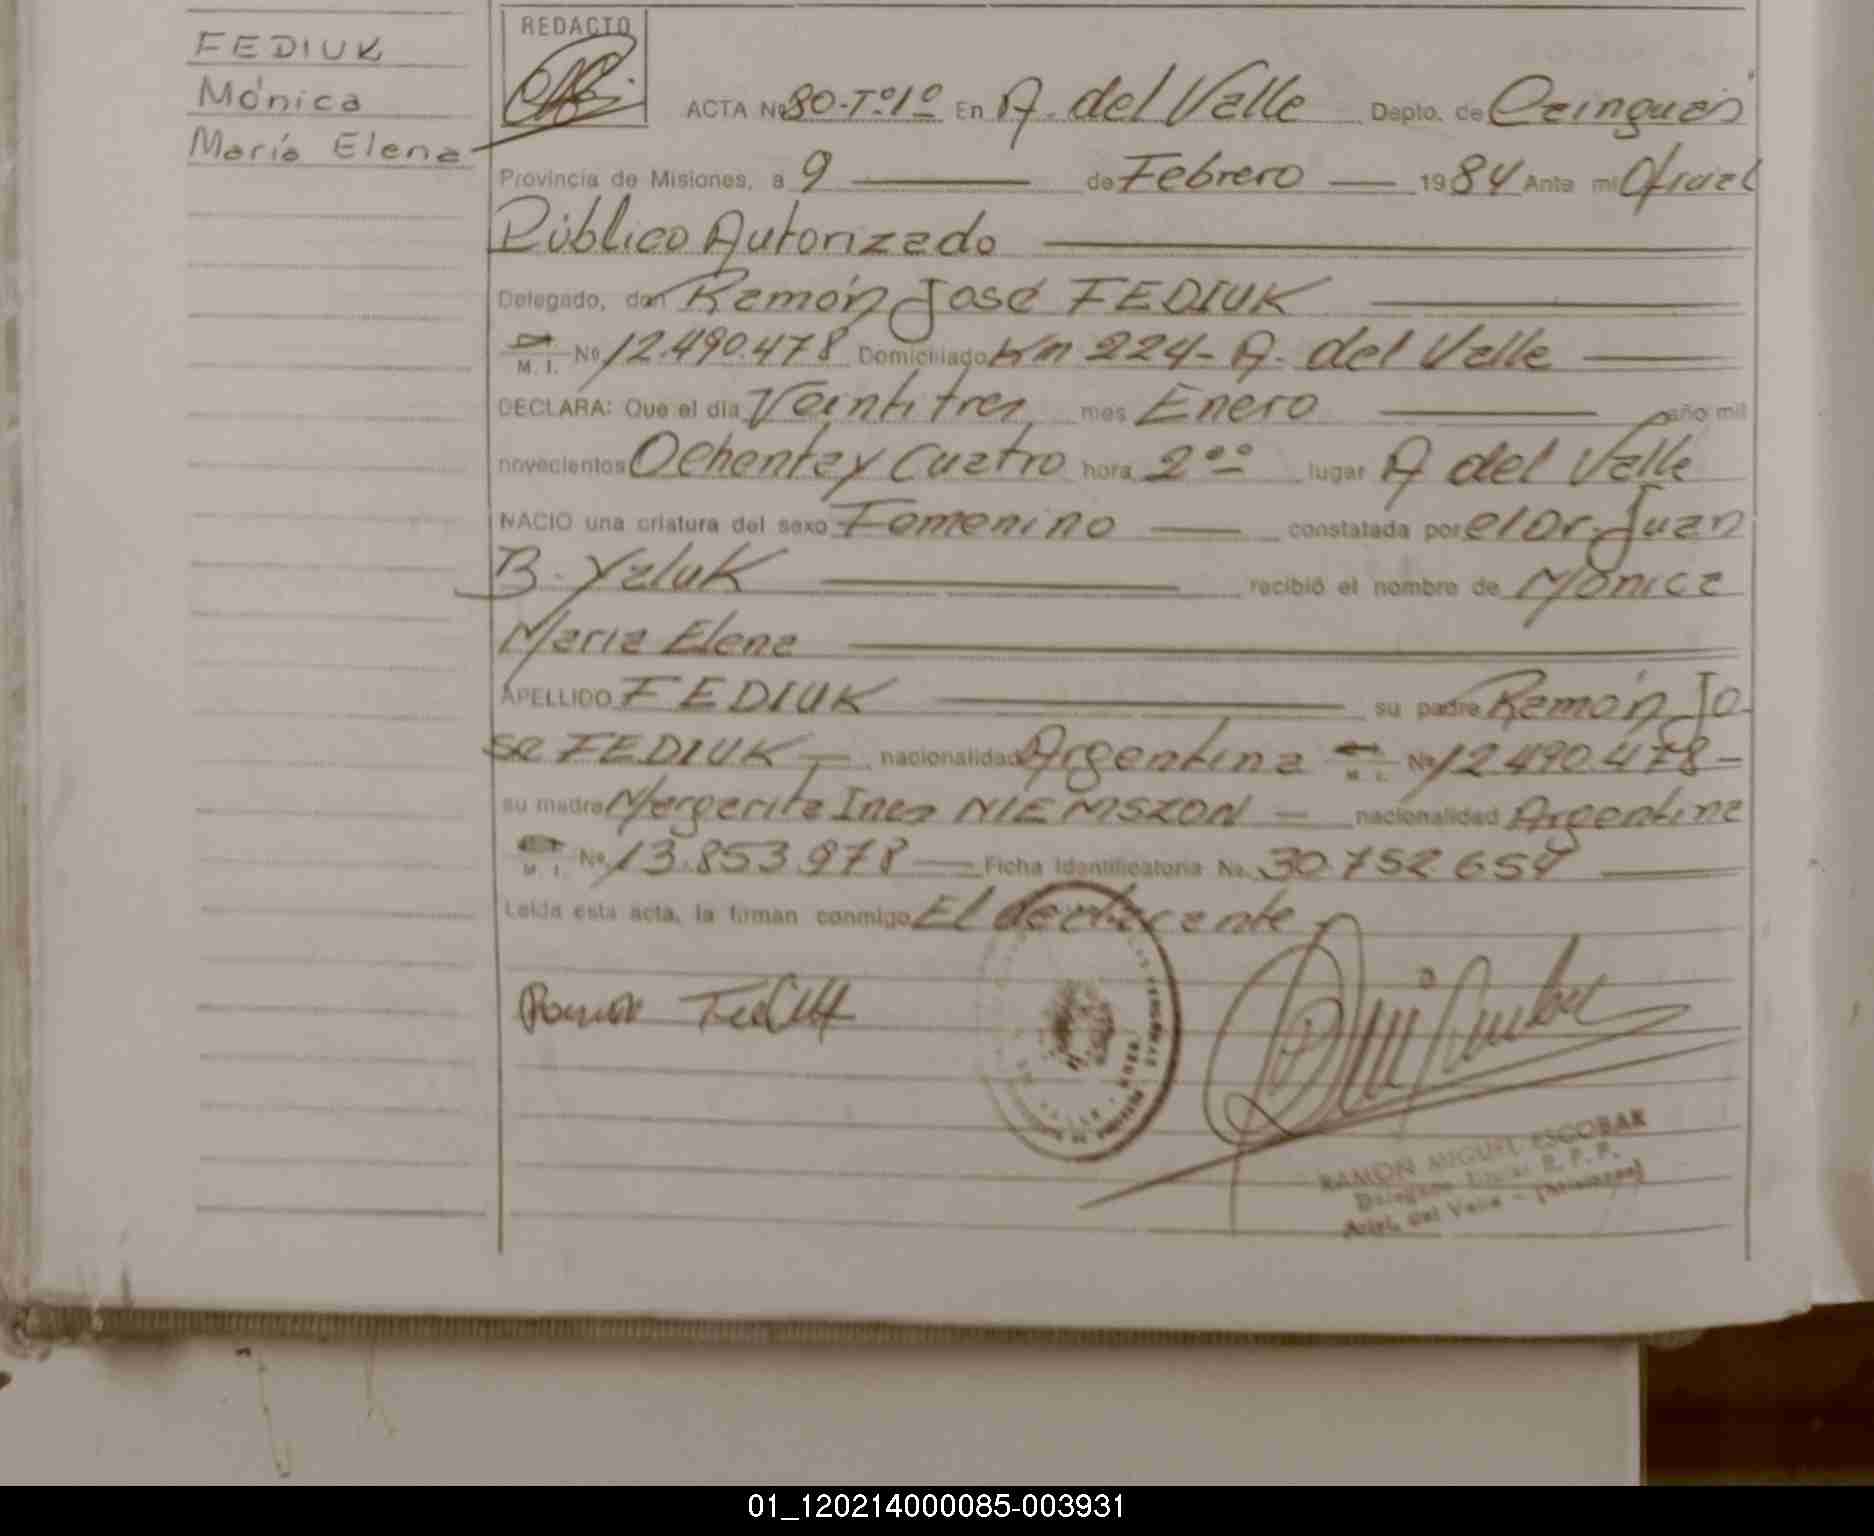 FEDIUK
Mónica
María Elena
REDACTO
ACTA Nº 80-Tº1º En A. del Valle Depto. de Cainguás
Provincia de Misiones, a 9 de Febrero 1984 Ante mi Oficial
Público Autorizado
Delegado, don Ramón José FEDIUK
M. I. Nº 12.490.478 Domiciliado Km 224- A. del Valle
DECLARA: Que el día Veintitres mes Enero año mil
novecientos Ochenta y Cuatro hora 2ºº lugar A del Valle
NACIO una criatura del sexo Femenino constatada por el Dr. Juan
B. Yaluk recibió el nombre de Mónica
María Elena
APELLIDO FEDIUK su padre Ramón Jo
se FEDIUK nacionalidad Argentina M. I. Nº 12.490.478-
su madre Margarita Ines NIEMSZON nacionalidad Argentina
M. I. Nº 13.853.978 Ficha Identificatoria No. 30.752.654
Leída esta acta, la firman conmigo El declarante
RAMON MIGUEL ESCOBAR
Delegado R. P. P.
Aristo. del Valle - (Misiones)
01_120214000085-003931